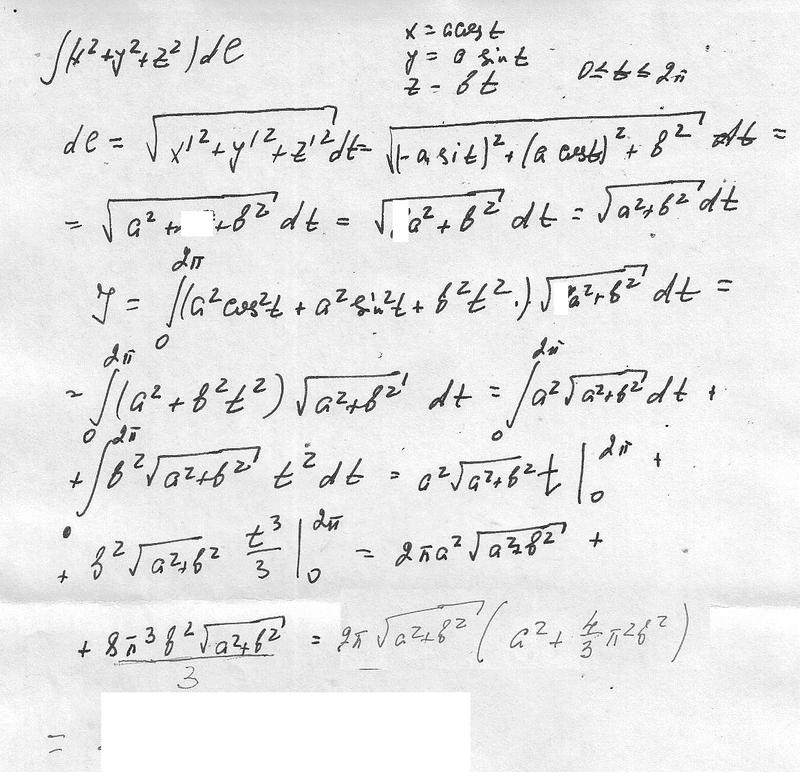 ∫(x²+y²+z²)dl
x = a cos t
y = a sin t
z = bt 0≤t≤2π
dl = √(x'²+y'²+z'²) dt = √((-a sit)²+(a cost)²+b²) dt =
= √(a²+ +b²) dt = √(a²+b²) dt = √(a²+b²) dt
J = ∫₀^2π (a²cos²t + a²sin²t + b²t².) √(a²+b²) dt =
= ∫₀^2π (a²+b²t²) √(a²+b²) dt = ∫₀^2π a²√(a²+b²) dt +
+ ∫₀^2π b²√(a²+b²) t² dt = a²√(a²+b²) t |₀^2π +
+ b²√(a²+b²) t³/3 |₀^2π = 2πa²√(a²+b²) +
+ 8π³b²√(a²+b²)/3 = 2π√(a²+b²) (a² + 4/3 π²b²)
=